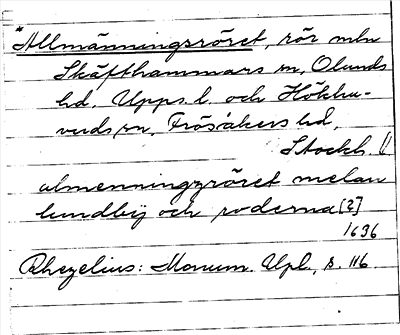 *Allmänningsröret, rör mln
Skäfthammars sn, Olands
hd, Upps. l. och Hökhu-
vuds sn, Frösåkers hd,
Stockh. l.
almenningzröret melan
lundbÿ och roderna [?]
1636
Rhezelius: Monum. Upl., s. 116